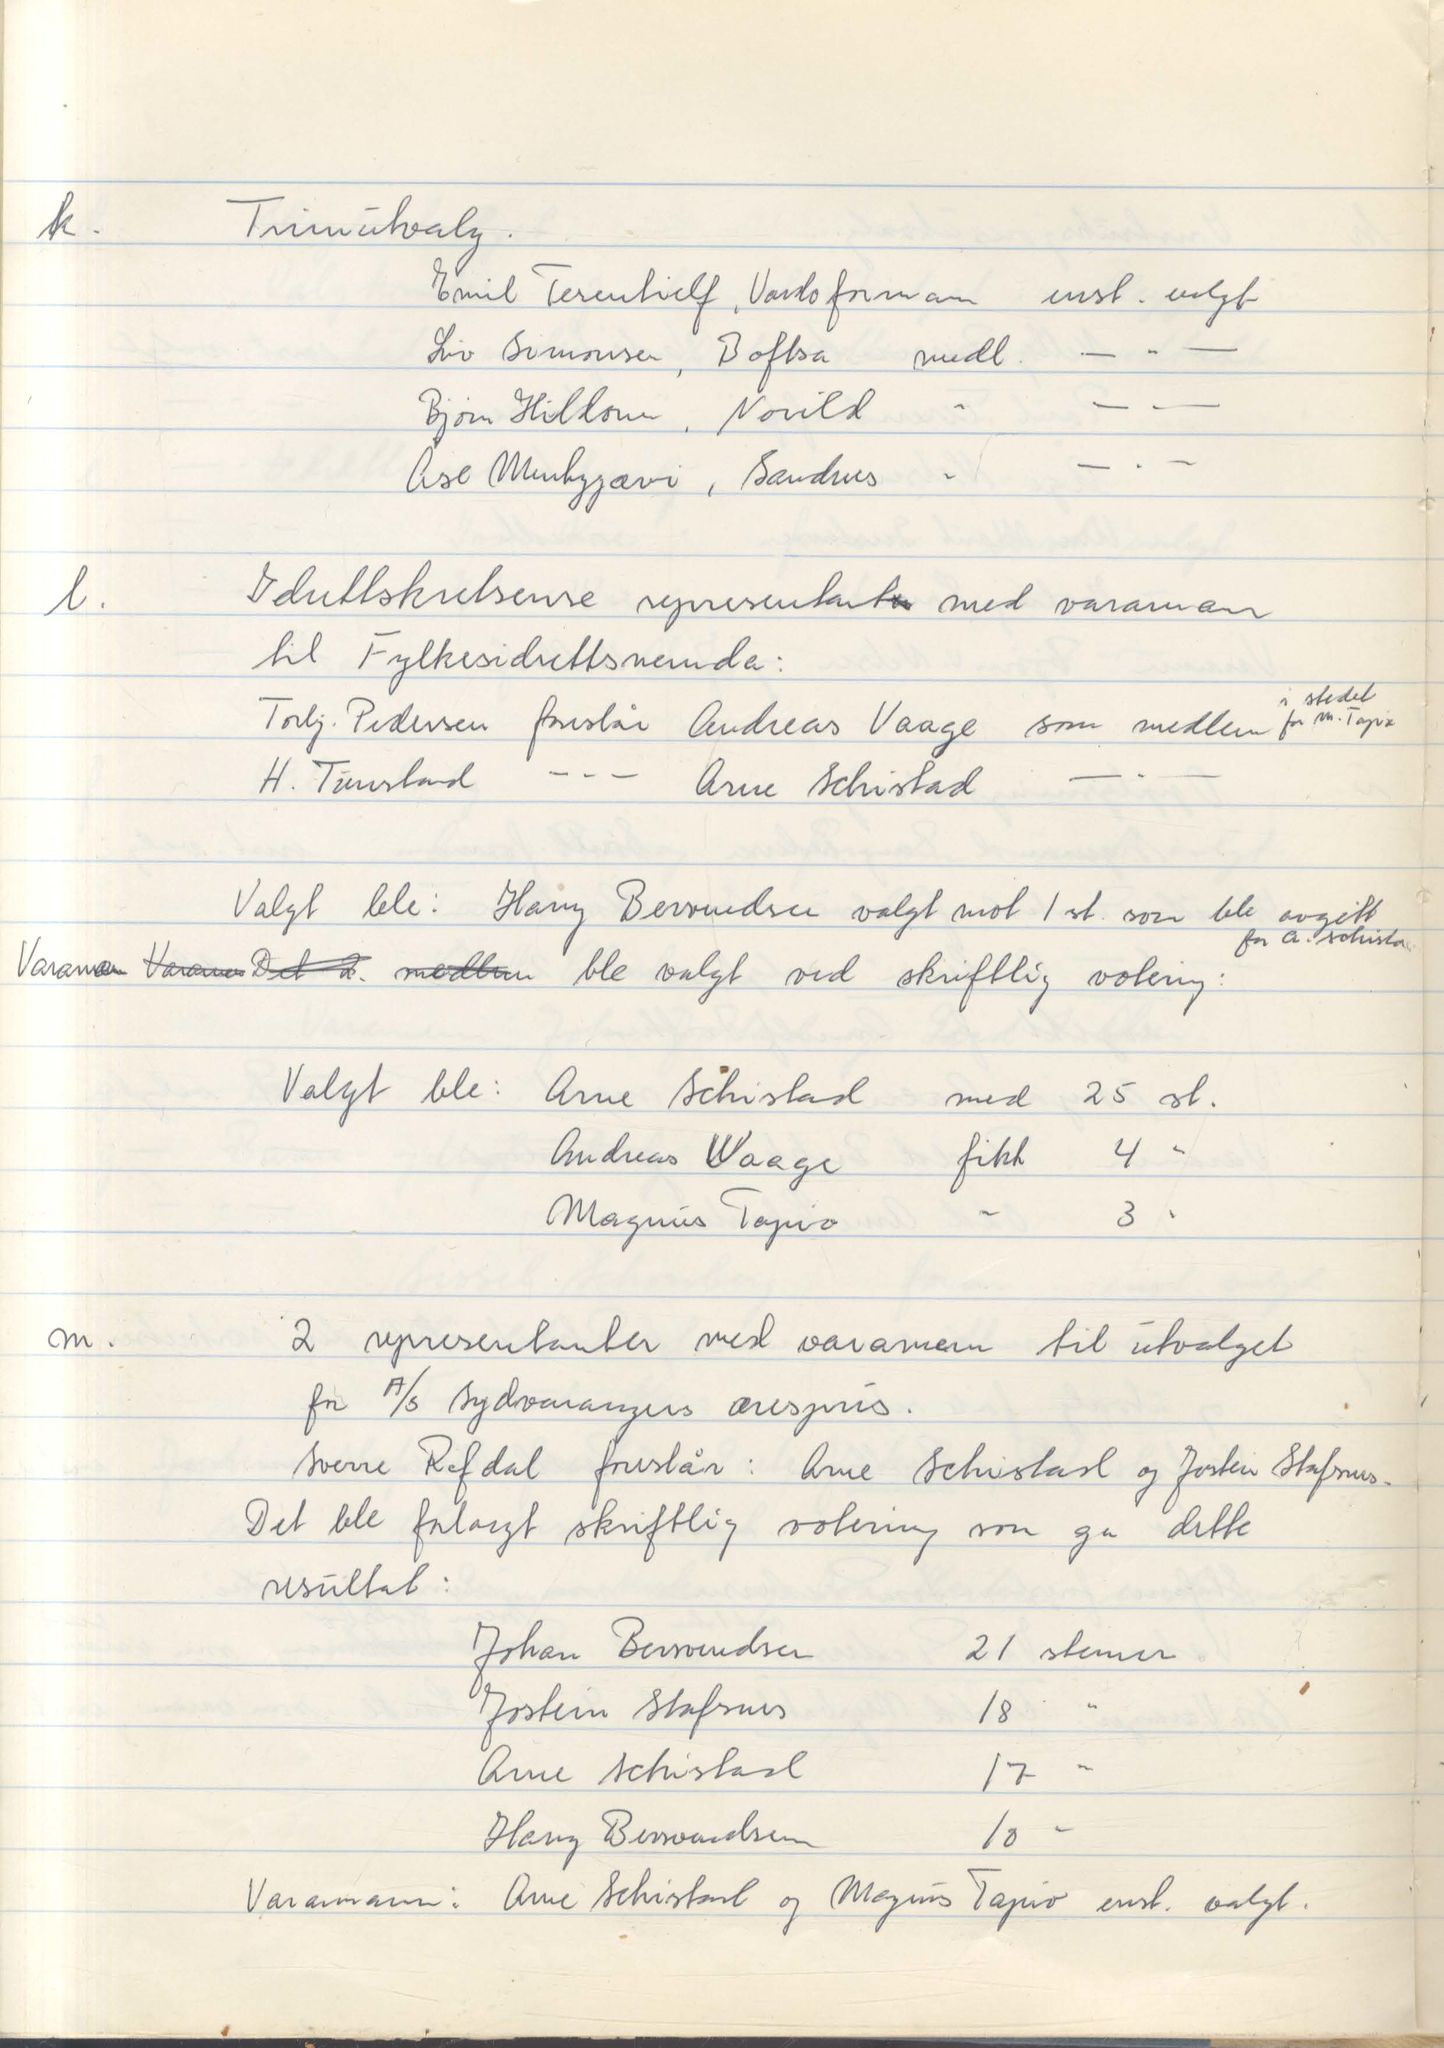 k. Trimutvalg.
Emil Terentieff, Vardo formann enst. valgt
Liv Simonsen, Boftsa medl. — " —
Bjørn Hillonen, Norild " — " —
Åse Munkgjævi, Sandnes " — " —
l. Idrettskretsense representant med varamann
til Fylkesidrettsnemnda:
Torbj. Pedersen foreslår Andreas Vaage som medlem i stedet
for M. Tapio
H. Tunstand - " - Arne Schistad — " —
Valgt ble: Harry Bersvendsen valgt mot 1 st. som ble avgitt
for A. Schistad
Varamann Varamann Det 2. medlem ble valgt ved skriftlig votering:
Valgt ble: Arne Schistad med 25 st.
Andreas Waage fikk 4 "
Magnus Tapio " 3 "
m. 2 representanter med varamenn til utvalget
for A/S Sydvarangers ærespris.
Sverre Refdal foreslår: Arne Schistad og Jostein Stafsnes.
Det ble forlangt skriftlig votering som ga dette
resultat:
Johan Bersvendsen 21 stemmer
Jostein Stafsnes 18 "
Arne Schistad 17 "
Harry Bersvendsen 10 "
Varamann: Arne Schistad og Magnus Tapio enst. valgt.